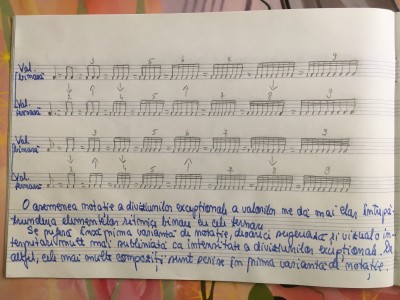 3 5 6 7 9
Val.
binară
Val.
ternară
3 5 6 7 9
Val.
binară
Val.
ternară
O asemenea notație a diviziunilor excepționale a valorilor ne dă mai clar întrepă-
trunderea elementelor ritmice binare cu cele ternare.
Se preferă însă prima variantă de notație, deoarece sugerează și vizual o in-
terpretare mult mai subliniată ca intensitate a diviziunilor excepționale. De
altfel, cele mai multe compoziții sunt scrise în prima variantă de notație.